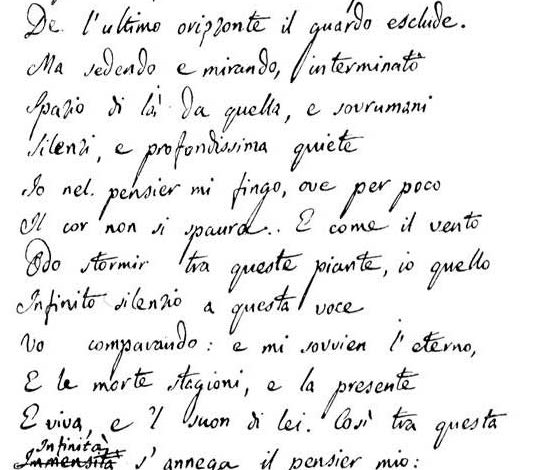 De l'ultimo orizzonte il guardo esclude.
Ma sedendo e mirando, interminato
Spazio di là da quella, e sovrumani
Silenzi, e profondissima quiete
Io nel pensier mi fingo, ove per poco
Il cor non si spaura.. E come il vento
Odo stormir tra queste piante, io quello
Infinito silenzio a questa voce
Vo comparando: e mi sovvien l'eterno,
E le morte stagioni, e la presente
E viva, e 'l suon di lei. Così tra questa
Infinità
Immensità s'annega il pensier mio: